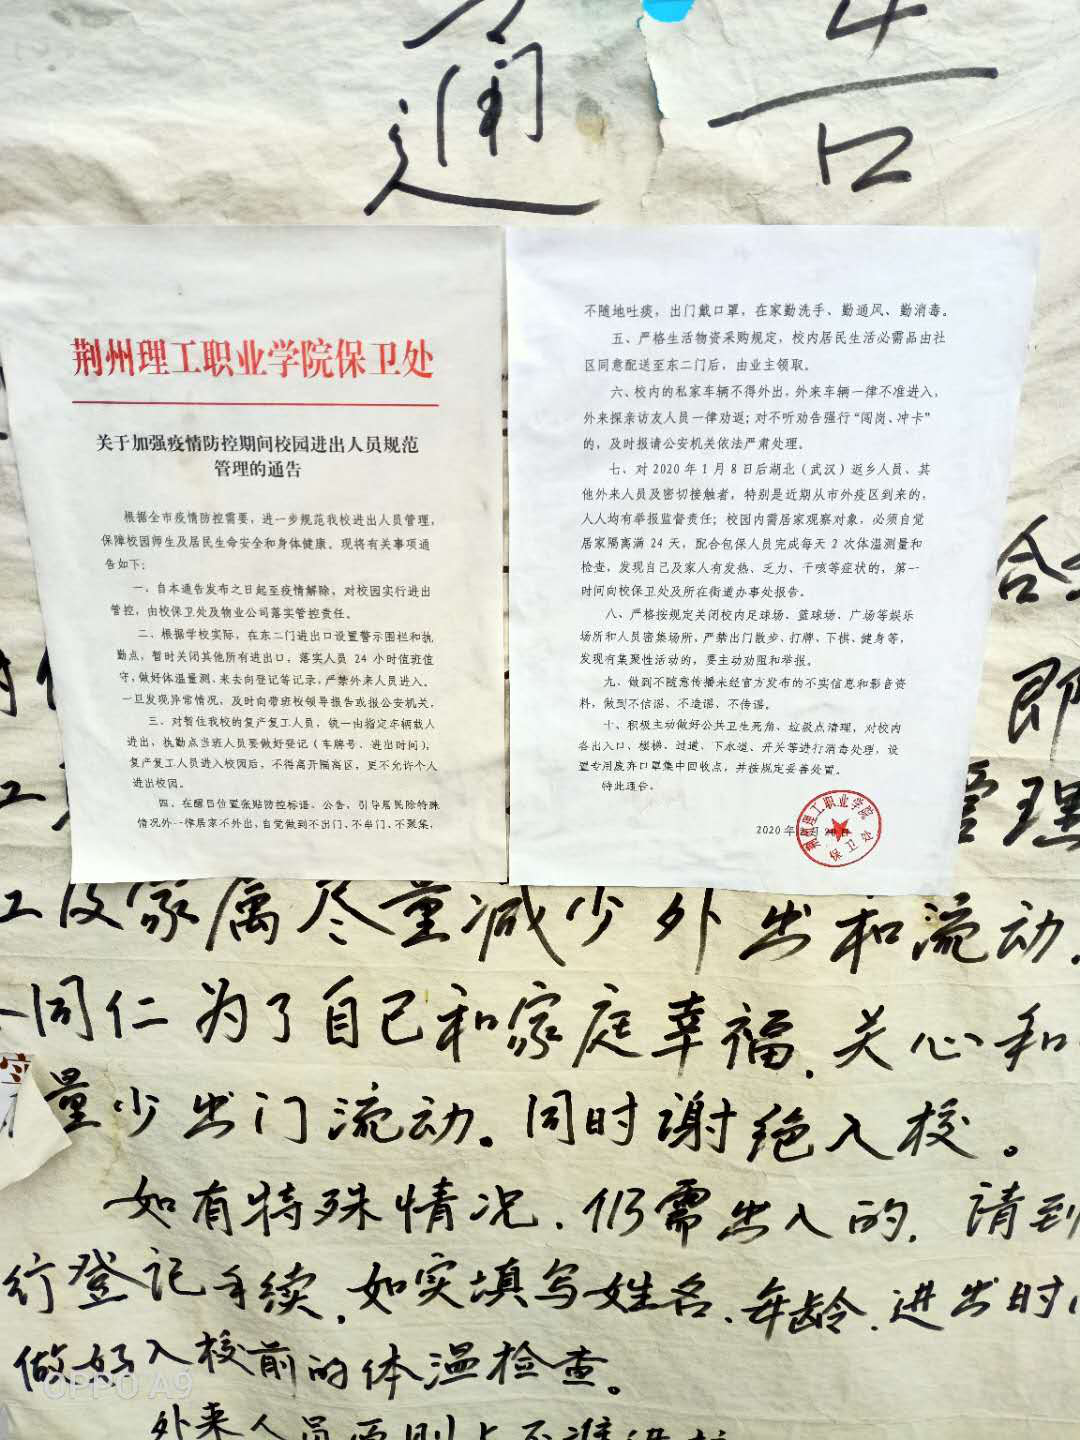 通告
荆州理工职业学院保卫处
关于加强疫情防控期间校园进出人员规范
管理的通告
根据全市疫情防控需要，进一步规范我校进出人员管理，
保障校园师生及居民生命安全和身体健康。现将有关事项通
告如下：
一、自本通告发布之日起至疫情解除，对校园实行进出
管控，由校保卫处及物业公司落实管控责任。
二、根据学校实际，在东二门进出口设置警示围栏和执
勤点，暂时关闭其他所有进出口。落实人员 24 小时值班值
守，做好体温量测、来去向登记等记录，严禁外来人员进入。
一旦发现异常情况，及时向带班校领导报告或报公安机关。
三、对暂住我校的复产复工人员，统一由指定车辆载人
进出，执勤点当班人员要做好登记（车牌号、进出时间），
复产复工人员进入校园后，不得离开隔离区，更不允许个人
进出校园。
四、在醒目位置张贴防控标语、公告，引导居民除特殊
情况外一律居家不外出，自觉做到不出门、不串门、不聚集，
不随地吐痰，出门戴口罩，在家勤洗手、勤通风、勤消毒。
五、严格生活物资采购规定，校内居民生活必需品由社
区同意配送至东二门后，由业主领取。
六、校内的私家车辆不得外出，外来车辆一律不准进入，
外来探亲访友人员一律劝返；对不听劝告强行“闯岗、冲卡”
的，及时报请公安机关依法严肃处理。
七、对 2020 年 1 月 8 日后湖北（武汉）返乡人员、其
他外来人员及密切接触者，特别是近期从市外疫区到来的，
人人均有举报监督责任；校园内需居家观察对象，必须自觉
居家隔离满 24 天，配合包保人员完成每天 2 次体温测量和
检查，发现自己及家人有发热、乏力、干咳等症状的，第一
时间向校保卫处及所在街道办事处报告。
八、严格按规定关闭校内足球场、篮球场、广场等娱乐
场所和人员密集场所，严禁出门散步、打牌、下棋、健身等，
发现有集聚性活动的，要主动劝阻和举报。
九、做到不随意传播未经官方发布的不实信息和影音资
料，做到不信谣、不造谣、不传谣。
十、积极主动做好公共卫生死角、垃圾点清理，对校内
各出入口、楼梯、过道、下水道、开关等进行消毒处理，设
置专用废弃口罩集中回收点，并按规定妥善处置。
特此通告。
2020 年 月
荆州理工职业学院
保卫处
合
即
管理
工及家属尽量减少外出和流动.
同仁为了自己和家庭幸福.关心和
量少出门流动。同时谢绝入校。
如有特殊情况、仍需出入的.请到
行登记手续.如实填写姓名、年龄.进出时
做好入校前的体温检查。
外来人员原则上不准进校
OPPO A9